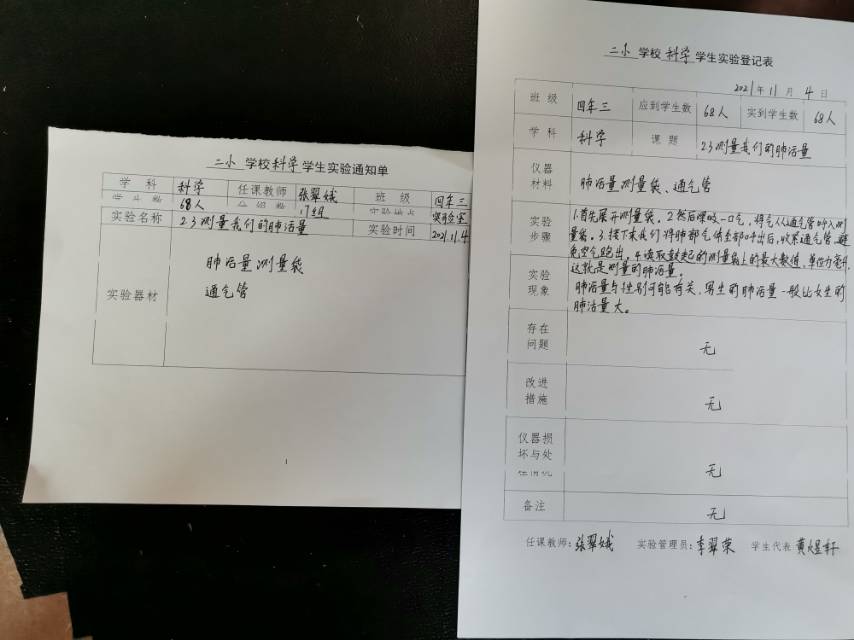 二小 学校 科学 学生实验通知单
学科 科学 任课教师 张翠娥 班级 四年三
68人 17组 实验室
实验名称 2.3测量我们的肺活量 实验时间 2021.11.4
实验器材
肺活量测量袋
通气管
1
二小 学校 科学 学生实验登记表
2021年11月4日
班级 四年三 应到学生数 68人 实到学生数 68人
学科 科学 课题 2.3测量我们的肺活量
仪器
材料
肺活量测量袋、通气管
实验
步骤
1.首先展开测量袋。2.然后深吸一口气,将气从通气管吹入测
量袋。3.接下来我们将肺部气体全部呼出后,收紧通气管,避
免空气跑出。4.读取鼓起的测量袋上的最大数值,单位为毫升,
这就是测量的肺活量。
实验
现象
肺活量与性别可能有关,男生的肺活量一般比女生的
肺活量大。
存在
问题
无
改进
措施
无
仪器损
坏与处
理情况
无
备注 无
任课教师:张翠娥 实验管理员:李翠荣 学生代表 黄煜轩